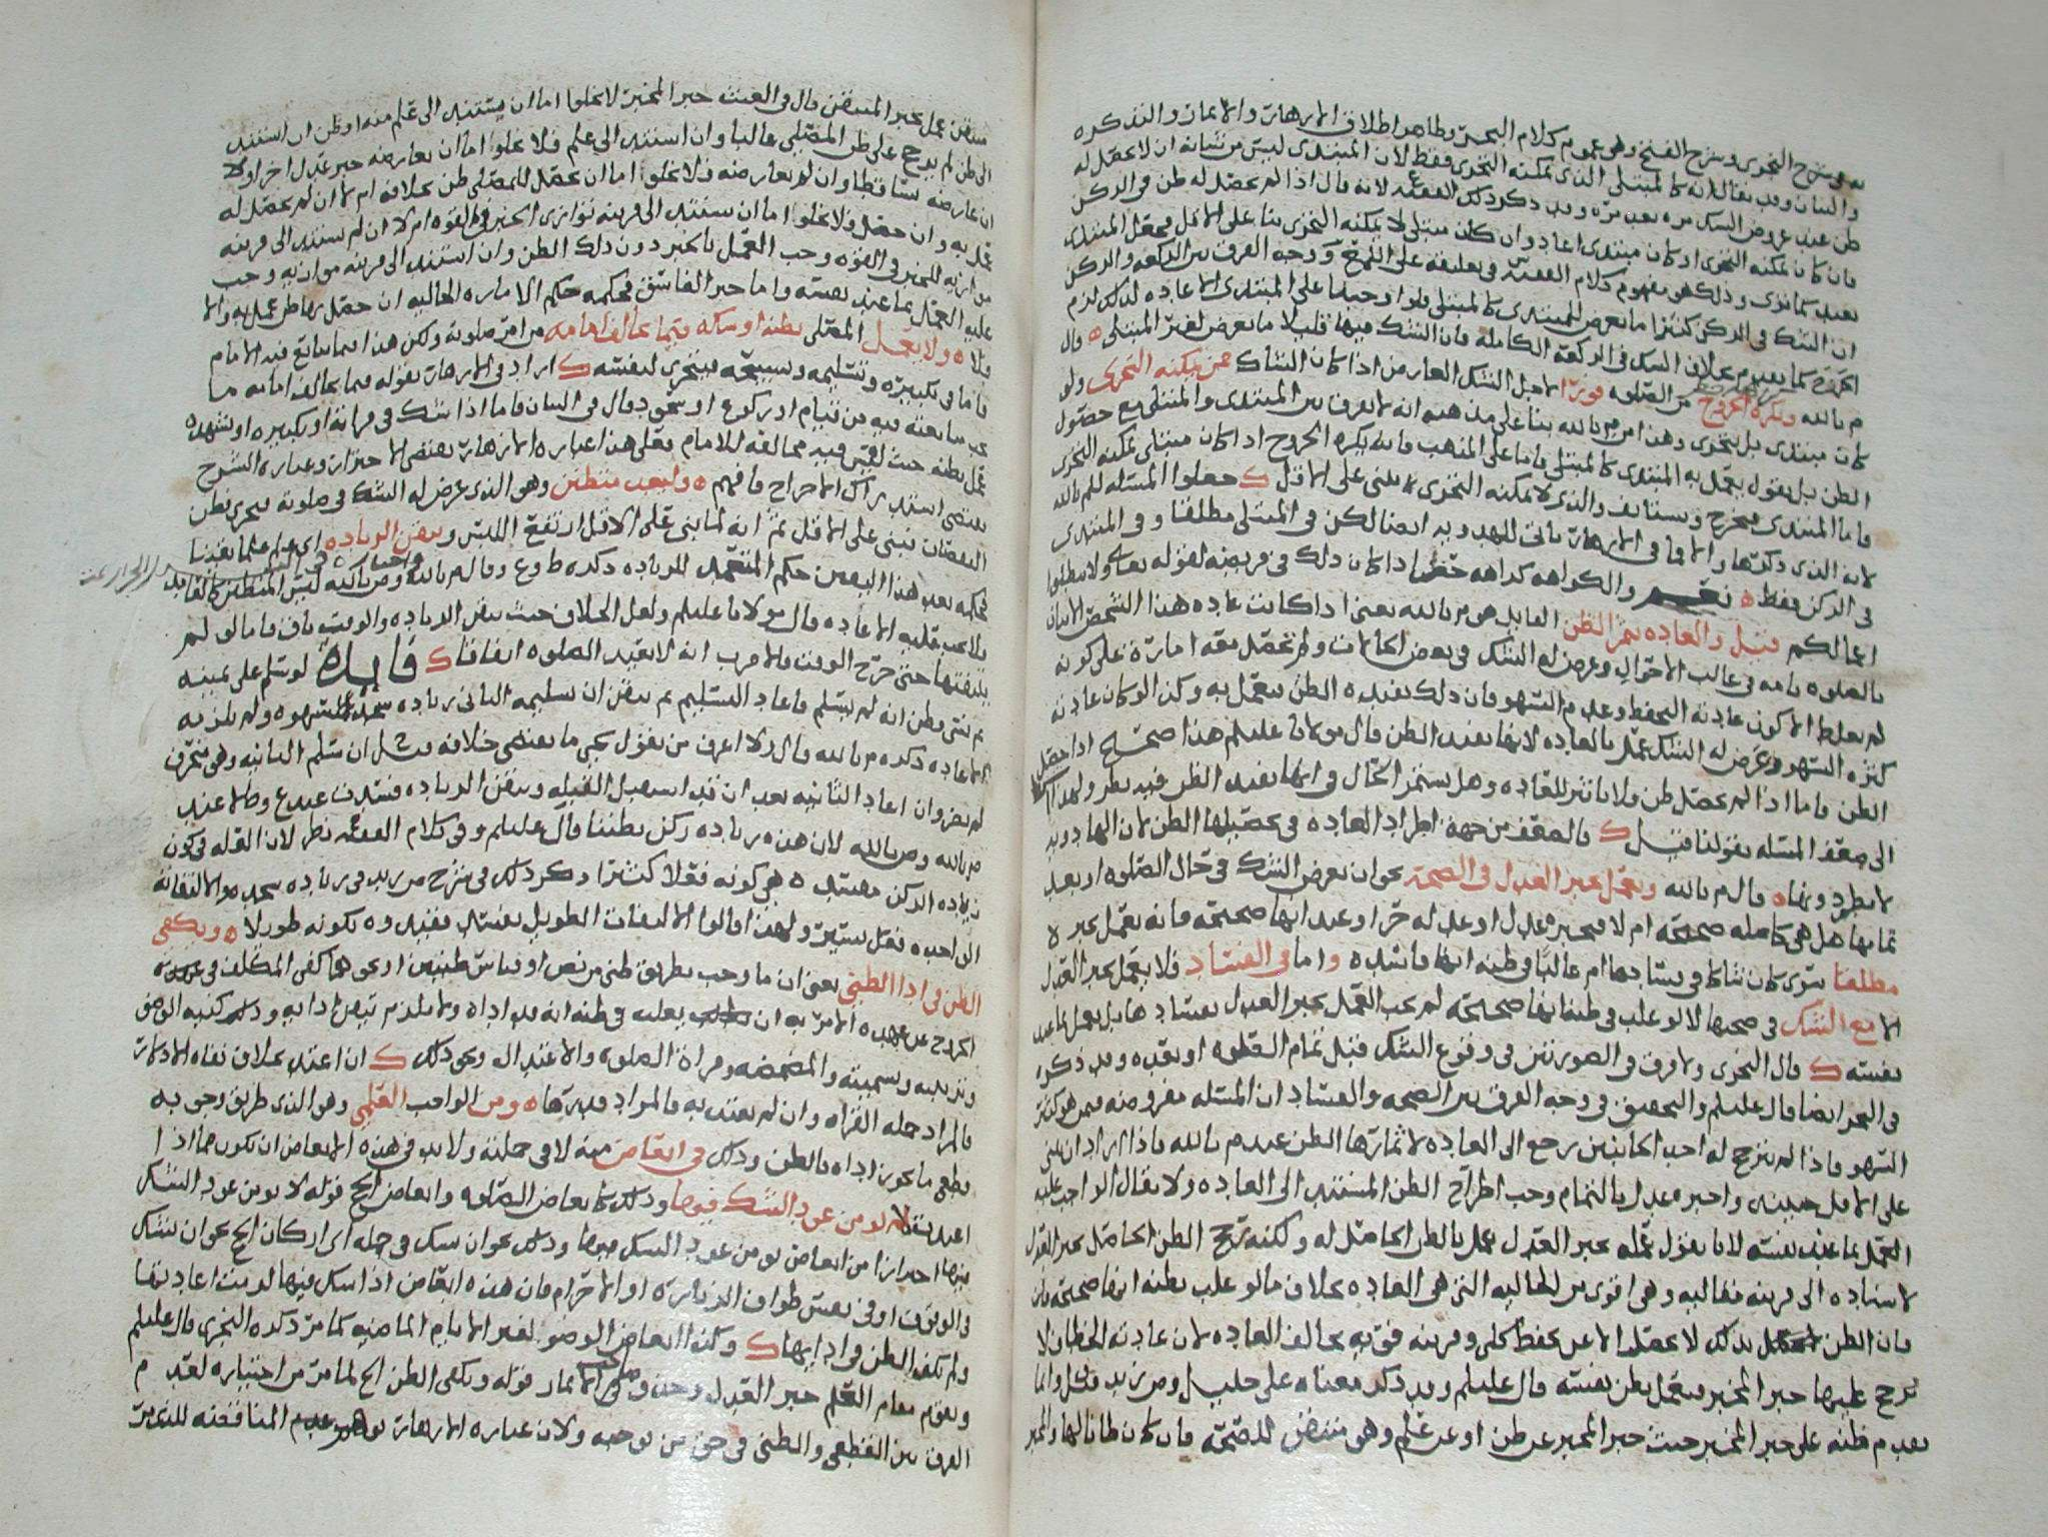 وشرح النجري وشرح الفتح وهي عموم كلام البحر وظاهر اطلاق الازهار والاثمار والتذكره
والبيان وقد يقال انه كالمبتلى الذي يمكنه التحري فقط لان المبتدى ليس من شانه ان لا يحصل له
ظن عند عروض الشك مره بعد مره وقد ذكر ذلك الفقيه لانه قال اذا لم يحصل له ظن في الركن
فان كان يمكنه التحري او كان مبتدى اعاد وان كان مبتلى لا يمكنه التحري بنا على الاقل فجعل المبتدى
بعيد كما ترى وذلك هو مفهوم كلام الفقيه في تعليقه على اللمع ووجه الفرق بين الركعه والركن
ان الشك في الركن كثيرا ما يعرض للمبتدى كالمبتلى فلو اوجبنا على المبتدى الاعاده لذلك لزم
الحرج كما تقدم بخلاف الشك في الركعه الكامله فان الشك فيها قليلا ما يعرض لغير المبتلى ه قال
م بالله ويكره الخروج من الصلوه فورا لاجل الشك العارض اذا كان الشاك ممن يمكنه التحري ولو
كان مبتدى بل يتحرى وهذا من م بالله بنا على مذهبه انه لا يفرق بين المبتدى والمبتلى مع حصول
الظن بل يقول يعمل به المبتدى كالمبتلى فاما على المذهب فانه يكره الخروج اذا كان مبتلى يمكنه التحري
فاما المبتدى فيخرج ويستانف والذي لا يمكنه التحري لا يبنى على الاقل ك جعلوا المسئله للم بالله
لانه الذي ذكرها والا فما في الازهار ياتي للهدويه ايضا لكن في المبتلى مطلقا وفي المبتدى
في الركن فقط ه نعم والكراهه كراهه حظر اذا كان ذلك في فريضه لقوله تعالى ولا تبطلوا
اعمالكم قيل والعاده تثمر الظن القايل هو م بالله يعني اذا كانت عاده هذا الشخص الاتيان
بالصلوه تامه في غالب الاحوال وعرض له الشك في بعض الحالات ولم تحصل معه امارة على كونه
لم يغلط الا كون عادته التحفظ وعدم السهو فان ذلك يفيده الظن فيعمل به وكذا لو كان عادته
كثره السهو وعرض له الشك عمل بالعاده لانها تفيد الظن قال مولانا عليلم هذا صحيح اذا حصل
الظن فاما اذا لم يحصل ظن ولا تاثير للعاده وهل يستمر الحال في انها تفيد الظن فيه نظر ولهذا اشرنا
الى ضعف المسئله بقولنا قيل ك فالضعف من جهة اطراد العاده في تحصيلها الظن لان الهادويه
لا يطردونها ه قال م بالله ويعمل بخبر العدل في الصحه نحو ان يعرض الشك في حال الصلوه او بعد
تمامها هل هي كامله صحيحه ام لا فيخبره عدل او عدله حرا او عبد انها صحيحه فانه يعمل بخبره
مطلقا سوى كان شاكا في فسادها ام غالبا في ظنه انها فاسده واما في الفساد فلا يعمل بخبر العدل
الا مع الشك في صحتها لا لو غلب في ظنه انها صحيحه لم يجب العمل بخبر العدل بفسادها بل يعمل بما عند
نفسه ك قال النجري ولا فرق في الصورتين في وقوع الشك قبل تمام الصلوه او بعده وقد ذكره
في البحر ايضا قال عليلم والتحقيق في وجه الفرق بين الصحه والفساد ان المسئله مفروضه فيمن هو كثير
السهو فاذا لم يترجح له احد الجانبين يرجع الى العاده لاثمارها الظن عند م بالله فاذا اراد ان يبنى
على الاقل حينئذ واخبره عدل بالتمام وجب اطراح الظن المستند الى العاده ولا يقال الواجب عليه
العمل بما عند نفسه لانا نقول عمله بخبر العدل عمل بالظن الحاصل له ولكنه رجح الظن الحاصل بخبر العدل
لاستناده الى قرينه مقاليه وهي اقوى من الحاليه التي هي العاده بخلاف ما لو غلب بظنه انها صحيحه فان
فان الظن بذلك لا يحصل الا عن تحفظ كلي وقرينه قويه تخالف العاده لان عادته الخطا فلا
ترجح عليها خبر المخبر فيعمل بظن نفسه قال عليلم وقد ذكر معناه علي خليل ومن زيد قيل وانما
يقدم ظنه على خبر المخبر حيث خبر المخبر عن ظن او عن علم وهو مناقض للصحه فان كان ظانا لها والمخبر
متيقن عمل بخبر المتيقن قال في الغيث خبر المخبر لا يخلوا اما ان يستند الى علم منه او ظن ان استند
الى ظن لم يرجح على ظن المصلى غالبا وان استند الى علم فلا يخلوا اما ان يعارضه خبر عدل اخر او لا
ان عارضه تساقطا وان لم يعارضه فلا يخلوا اما ان يحصل للمصلى ظن بخلافه ام لا ان لم يحصل له
عمل به وان حصل فلا يخلوا اما ان يستند الى قرينه توازي الخبر في القوه ام لا ان لم يستند الى قرينه
موازنه للخبر في القوه وجب العمل بالخبر دون ذلك الظن وان استند الى قرينه موازيه وجب
عليه العمل بما عند نفسه واما خبر الفاسق فحكمه حكم الاماره الحاليه ان حصل بها ظن عمل به والا
فلا ه ولا يعمل المصلى بظنه او شكه فيما يخالف امامه من امر صلوته ولكن هذا فيما يتابع فيه الامام
فاما في تكبيره وتسليمه وتسبيحه فيتحرى لنفسه ك اراد في الازهار بقوله فيما يخالف امامه ما
يجب متابعته فيه من قيام او ركوع او سجود قال في البيان فاما اذا شك في قراته او تكبيره او تشهده
عمل بظنه حيث ليس فيه مخالفه للامام فعلى هذا عباره الازهار تقتضي الاحتراز وعباره الشرح
تقتضي استدراك الاخراج فافهم ه وليعد متظنن وهو الذي عرض له الشك في صلوته فتحرى بظن
النقصان فبنى على الاقل ثم انه لما بنى على الاقل ارتفع اللبس وتيقن الزياده اي علم علما يقينا
فحكمه بعد هذا اليقين حكم المتعمد للزياده ذكره ط وع وقال م بالله وص بالله ليس المتظنن كالقاصد
فلا يجب عليه الاعاده قال مولانا عليلم ولعل الخلاف حيث تيقن الزياده والوقت باق فاما لو لم
يتيقنها حتى خرج الوقت فالاقرب انه لا يعيد الصلوه اتفاقا ك فايده لو سلم على يمينه
ثم نسي وظن انه لم يسلم فاعاد التسليم ثم تيقن ان تسليمه الثاني زياده سجد للسهو ولم تلزمه
الاعاده ذكره م بالله قال ولا اعرف من يقول يحيى ما يقتضي خلافه مثل ان سلم الثانيه وهي متحرف
لم يضر وان اعاد الثانيه بعد ان قد استقبل القبله وتيقن الزياده فسدت عند ع وط لا عند
م بالله وص بالله لان هذه زياده ركن بظننا قال عليلم وفي كلام الفقيه نظر لان العله في كون
زياده الركن مفسده هي كونه فعلا كثيرا وذكر ذلك في شرح ص زيد في زياده سجده والالتفاته
الى احده فعل يسير ولهذا قالوا الالتفات الطويل يفسد بقيده وه بكونه طويلا ه ويكفي
الظن في ادا الظني يعني ان ما وجب بطريق ظني من نص او قياس ظنيين او نحوهما كفى المكلف في
الخروج عن عهده الامر به ان يغلب في ظنه انه قد اداه ولا يلزم تيقن ادايه وذلك كنيه الوضو
وترتيبه وتسميته والمضمضه وقراة الصلوه والاعتدال ونحو ذلك ك ان اعتد بخلاف نفاه الاذكار
فالمراد جمله القراه وان لم يعتد به فالمراد قدرها ه ومن الواجب العلمي وهو الذي طريق وجوبه
قطعي ما يجوز اداه بالظن وذلك في ابعاض منه لا في جملته ولابد في هذه الابعاض ان تكون مما اذا
اعيد لم يومن عود الشك فيها وذلك كابعاض الصلوه وابعاض الحج قوله لا يومن عود الشك
فيها احترازا من ابعاض يومن عود الشك فيها وذلك نحو ان يشك في جمله اي اركان الحج نحو ان يشك
في الوقوف او في نفس طواف الزياره او الاحرام فان هذه ابعاض اذا شك فيها لزمت اعادتها
ولم يكف الظن في ادايها ك وكذا ابعاض الوضو لغير الايام الماضيه كما مر ذكره النجري قال عليلم
ويقوم مقام العلم خبر العدل وحذف صاحب الاثمار قوله ويكفي الظن الخ لما مر من اختياره لعدم
الفرق بين القطعي والظني في حق من يوجبه ولان عباره الازهار توهم عدم المناقضه للذي مر